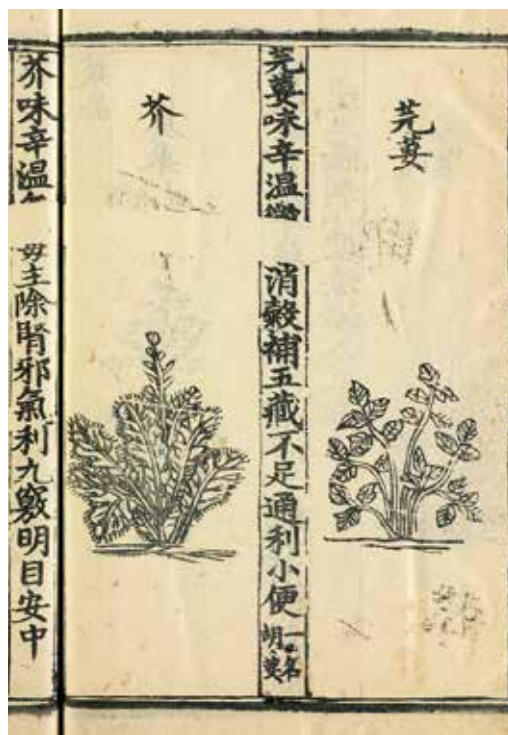 芫荽
芫荽味辛温
消穀補五藏不足通利小便
一名
胡荽
芥
芥味辛温
主除腎邪氣利九竅明目安中